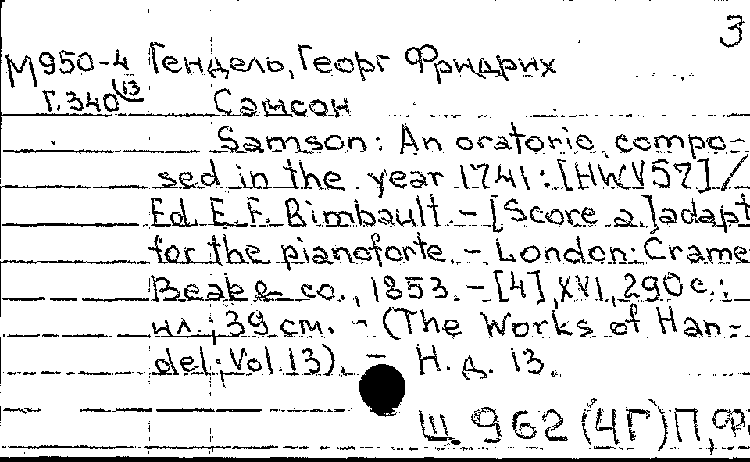 3
М950-4 Гендель, Георг Фридрих
Г.340 13 Самсон
Samson: An oratorio compo-
sed in the year 1741: [HWV57] /
Ed. E. F. Rimbault. - [Score a.] adapt
for the pianoforte. - London: Crame
Beale & co., 1853. - [4], XVI, 290 с.:
ил.; 39 см. - (The Works of Han-
del; Vol. 13). - Н. д. 13.
Ш. 962 (4Г) П, Ф